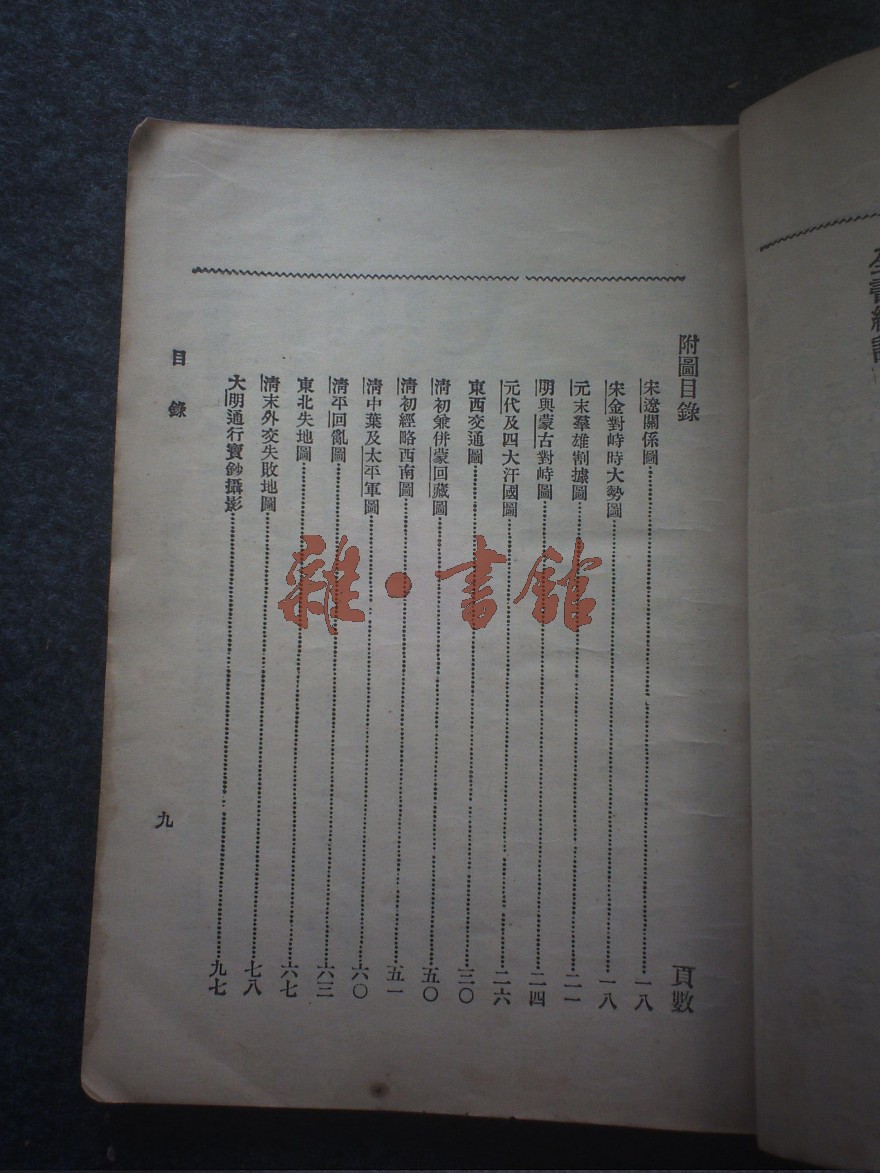 附圖目錄 頁數
宋遼關係圖 一八
宋金對峙時大勢圖 一八
元末羣雄割據圖 二一
明與蒙古對峙圖 二四
元代及四大汗國圖 二六
東西交通圖 三〇
清初兼併蒙回藏圖 五〇
清初經略西南圖 五一
清中葉及太平軍圖 六〇
清平回亂圖 六三
東北失地圖 六七
清末外交失敗地圖 七八
大明通行寶鈔攝影 九七
目錄
九
雜·書館